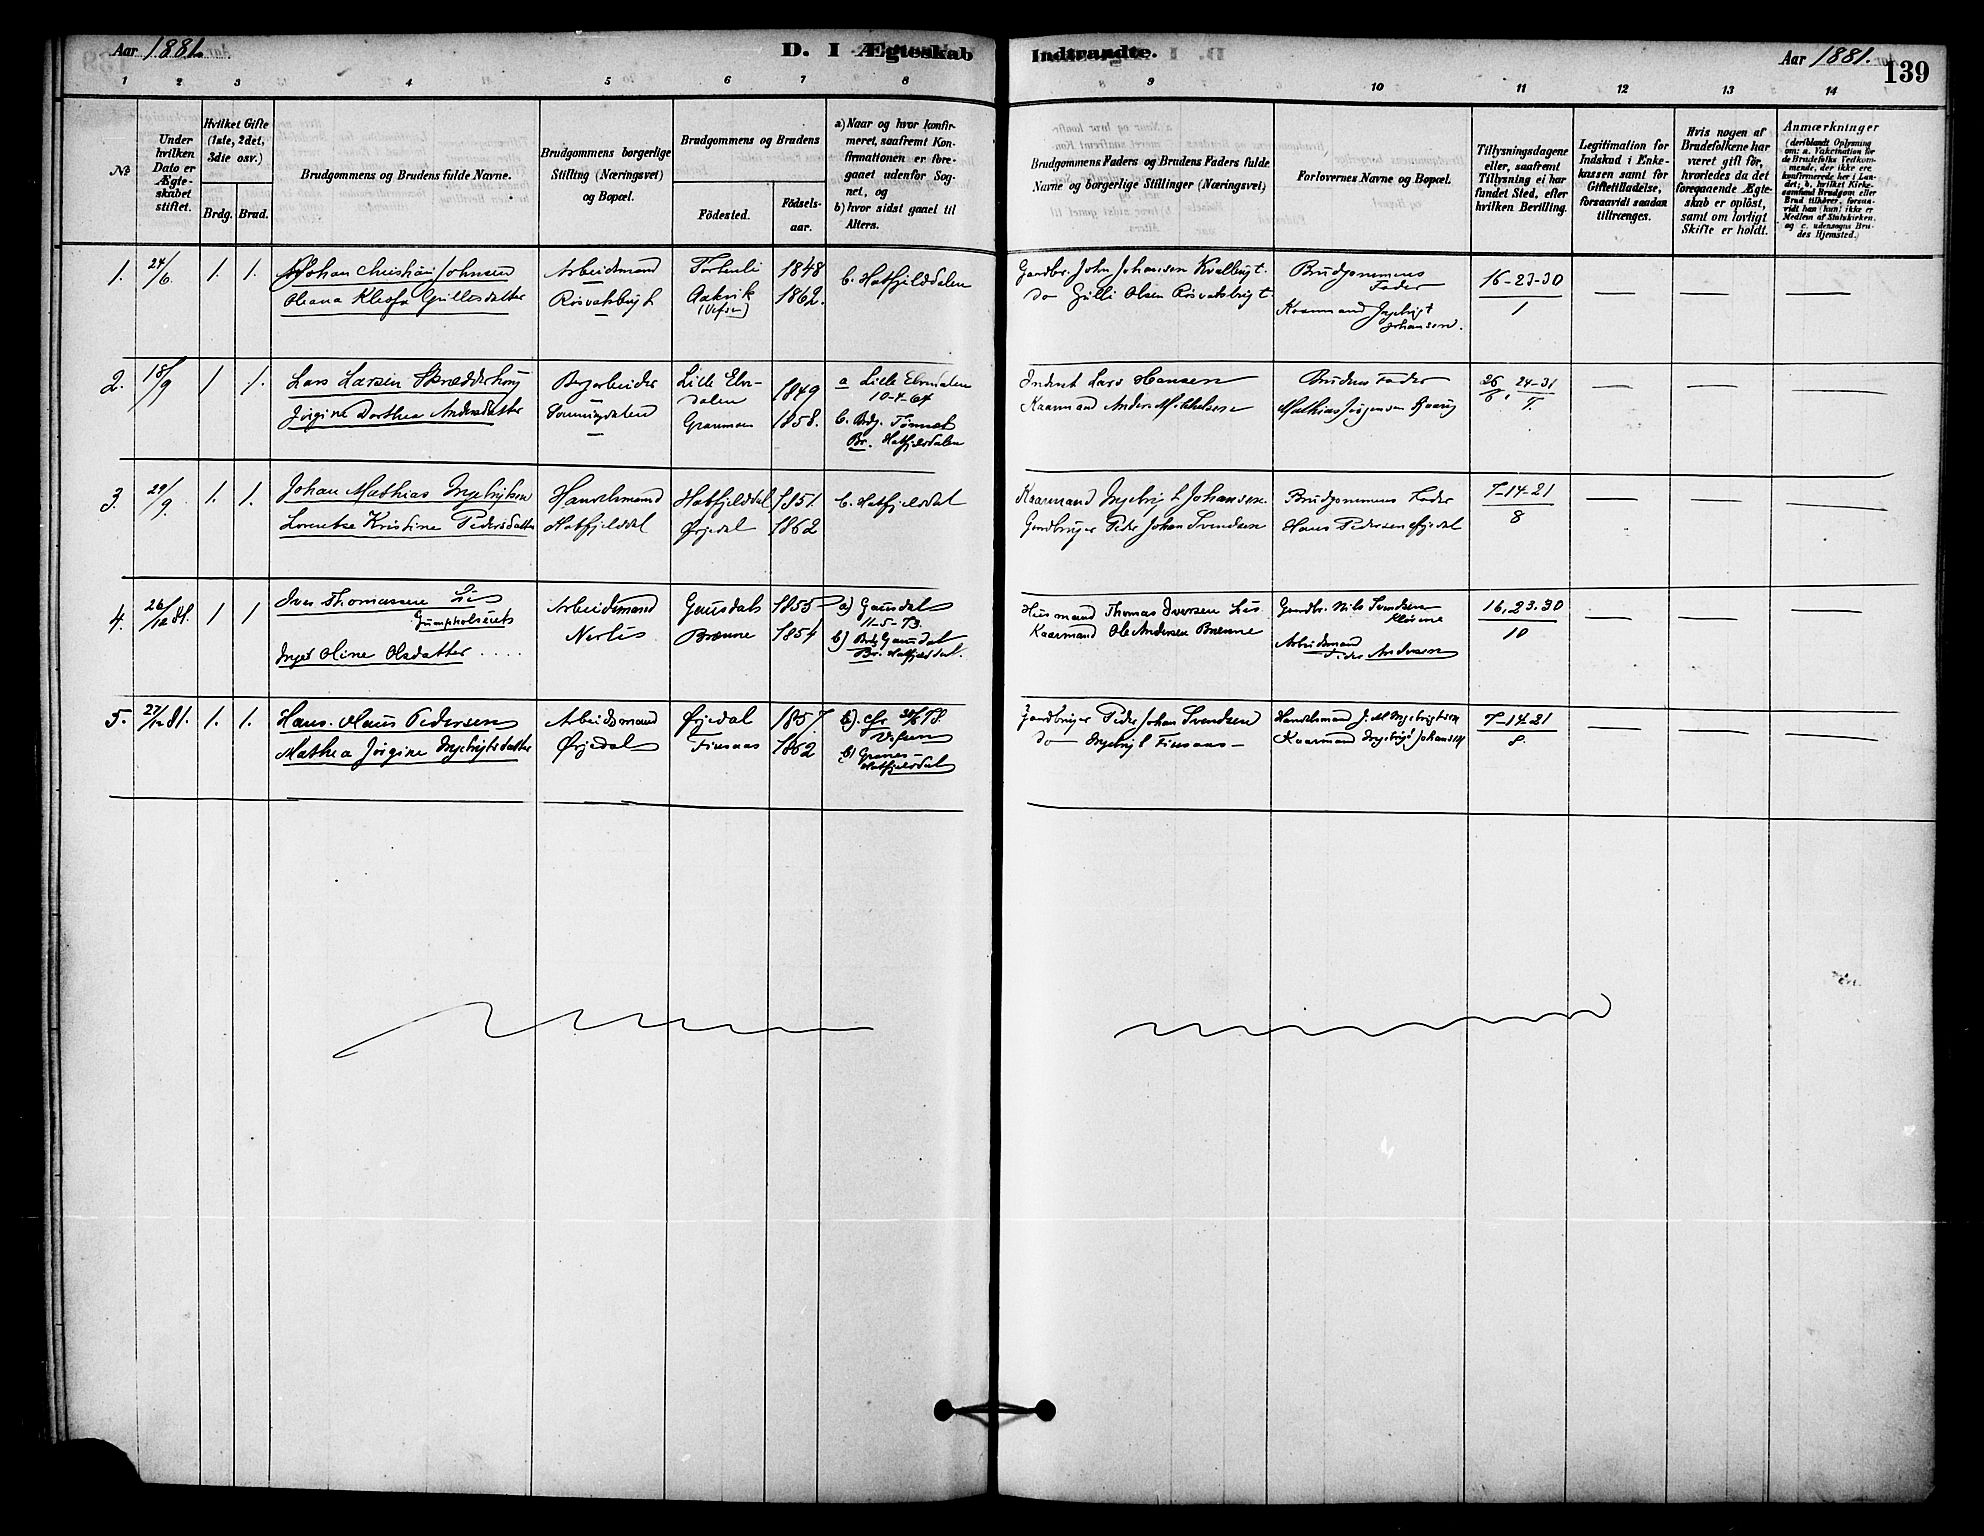 Aar 1881. D. I Ægteskab Indtraadte. Aar 1881. 139
1 2 3 4 5 6 7 8 9 10 11 12 13 14
№
Under hvilken Dato er Ægteskabet stiftet.
Hvilket Gifte (1ste, 2det, 3die osv.)
Brdg. Brud.
Brudgommens og Brudens fulde Navne.
Brudgommens borgerlige Stilling (Næringsvei) og Bopæl.
Brudgommens og Brudens
Fødested. Fødselsaar.
a) Naar og hvor konfirmeret, saafremt Konfirmationen er foregaaet udenfor Sognet, og
b) hvor sidst gaaet til Alters.
Brudgommens Faders og Brudens Faders fulde Navne og borgerlige Stillinger (Næringsvei)
Forlovernes Navne og Bopæl.
Tillysningsdagene eller, saafremt Tillysning ei har fundet Sted, efter hvilken Bevilling.
Legitimation for Indskud i Enkekassen samt for Giftetilladelse, forsaavidt saadan tiltrænges.
Hvis nogen af Brudefolkene har været gift før, hvorledes da det foregaaende Ægteskab er opløst, samt om lovligt Skifte er holdt.
Anmærkninger (deriblandt Oplysning om: a. Vakcination for de Brudefolks Vedkommende, der ikke ere konfirmerede her i Landet; b. hvilket Kirkesamfund Brudgom eller Brud tilhører, forsaavidt han (hun) ikke er Medlem af Statskirken, og c. udensogns Brudes Hjemsted.)
1. 24/6. 1. 1. Johan Christian Johnsen Arbeidsmand 1848 b. Hatfjelddalen Gaardbr. John Johansen Kvalbugt. Brudgommens Fader 16-23-30
Oleana Kleofa Grillesdatter Røsvatsbugt Aakvik (Vefsn) 1862. do Grilli Olsen Røsvatsbugt. Kaarmand Ingebrigt Johansen. 1
2. 18/9 1 1. Lars Larsen Skrædderhaug Bergarbeider Lille Elvdalen 1849 a Lille Elvdalen 10-7-64 Inderst Lars Hansen Brudens Fader 26/6, 24-31
Jørgine Dorthea Andersdatter Grannæs 1858. b. Brdg. Tønset Br. Hatfjelddalen Kaarmand Anders Mikkelsen Mathias Jørgensen 7.
3. 29/9. 1. 1. Johan Mathias Ingebrigtsen Handelsmand Hatfjelddal 1851. b. Hatfjelddal Kaarmand Ingebrigt Johansen. Brudgommens Fader 7-14-21
Lorentse Kristine Pedersdatter Hatfjelddal Ørjedal 1862 Gaardbruger Peder Johan Svendsen Hans Pedersen Ørjedal 8
4. 26/12 81. 1 1 Iver Thomassen Lie Arbeidsmand Gausdal 1855 a) Gausdal 11-5-73. Husmand Thomas Iversen Lie Gaardbr. Nils Svendsen 16, 23, 30
Inger Oline Olsdatter .... Nerlie Brenne 1854 b) Brdg Gausdal Br. Hatfjelddal. Kaarmand Ole Andersen Brenne Arbeidsmand Peder Andersen 10
5. 27/12 81. 1. 1. Hans Maus Pedersen Arbeidsmand Ørjedal 1857. Vefsen Gaardbruger Peder Johan Svendsen Handelsmand J. M. Ingebrigtsen 7-14-21
Mathea Jørgine Ingebrigtsdatter Ørjedal Finsaas 1862 b) Granes- Hatfjelddal do Ingebrigt Finsaas Kaarmand Ingebrigt Johansen 8.